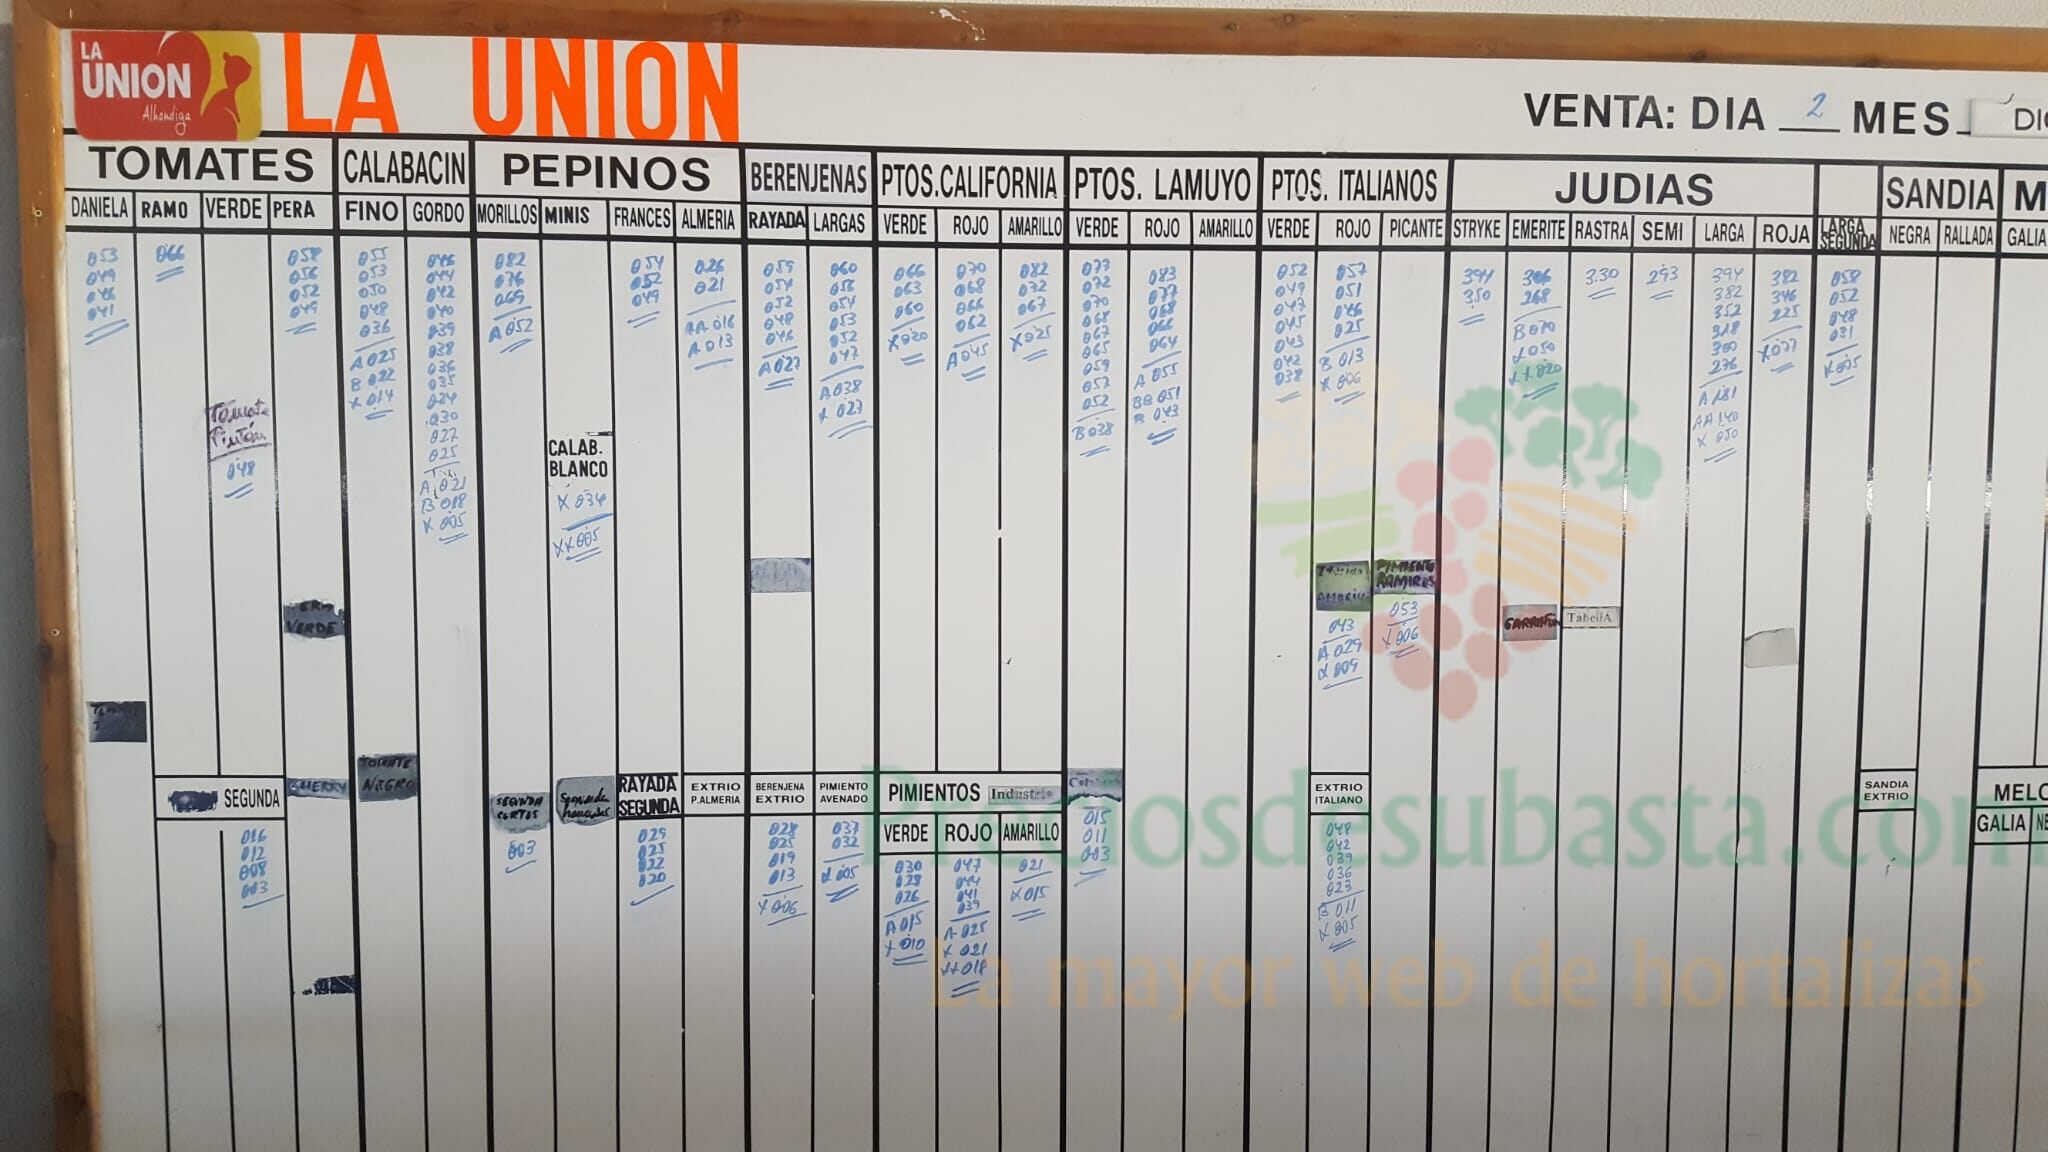 LA UNION Alhóndiga
LA UNION
VENTA: DIA 2 MES DIC
TOMATES CALABACIN PEPINOS BERENJENAS PTOS.CALIFORNIA PTOS. LAMUYO PTOS. ITALIANOS JUDIAS SANDIA M
DANIELA RAMO VERDE PERA FINO GORDO MORILLOS MINIS FRANCES ALMERIA RAYADA LARGAS VERDE ROJO AMARILLO VERDE ROJO AMARILLO VERDE ROJO PICANTE STRYKE EMERITE RASTRA SEMI LARGA ROJA LARGA SEGUNDA NEGRA RALLADA GALIA
053
049
046
041
066
Tomate
Pintón
048
058
056
052
049
055
053
050
048
036
A 025
B 022
X 014
046
044
042
040
039
038
036
035
034
030
027
025
A 021
B 018
X 005
082
076
069
A 052
CALAB.
BLANCO
X 034
XX 005
054
052
049
026
021
AA 016
A 013
059
054
052
048
046
A 027
060
056
054
053
052
047
A 038
X 027
066
063
060
X 020
070
068
066
062
A 045
082
072
067
X 025
077
072
070
068
067
065
059
057
052
B 038
083
077
068
066
064
A 055
BB 051
B 043
052
049
047
045
043
042
038
057
051
046
025
B 013
X 006
AMARILL
043
A 029
X 009
PIMIENTO
RAMIRES
053
X 006
394
350
306
268
B 070
X 050
XX 020
GARRAFON
3.30
TabellA
293
394
382
352
318
300
276
A 181
AA 140
X 050
382
346
225
X 077
058
052
048
031
X 005
VERDE
SEGUNDA
016
012
008
003
CHERRY
TOMATE
NEGRO
SEGUNDA
CORTOS
003
Segunda
RAYADA
SEGUNDA
029
025
022
020
EXTRIO
P.ALMERIA
BERENJENA
EXTRIO
028
025
019
013
X 006
PIMIENTO
AVENADO
037
032
X 005
PIMIENTOS Industria
VERDE ROJO AMARILLO
030
028
026
A 015
X 010
047
044
041
039
A 025
X 021
XX 018
021
X 015
015
011
003
EXTRIO
ITALIANO
048
042
039
036
023
B 011
X 005
SANDIA
EXTRIO
MELO
GALIA NE
Preciosdesubasta.com
La mayor web de hortalizas